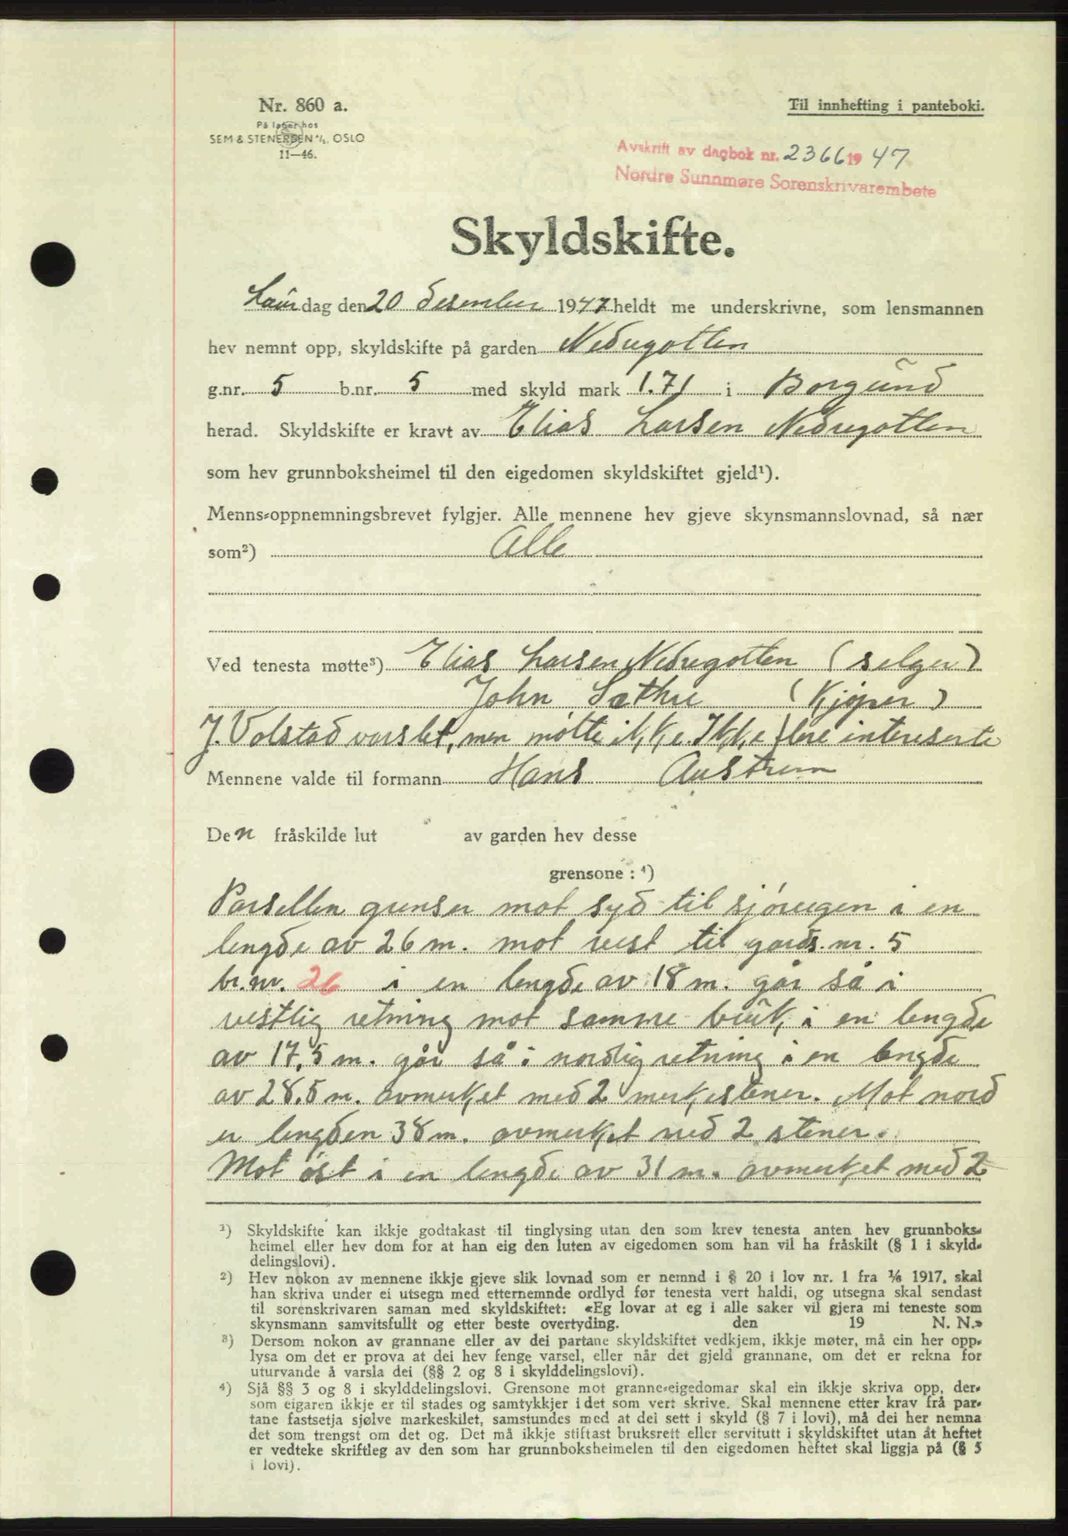 Nr. 860 a.
På lager hos
SEM & STENERSEN A/S, OSLO
11—46.
Til innhefting i panteboki.
Avskrift av dagbok nr. 2366 1947
Nordre Sunnmøre Sorenskrivarembete
Skyldskifte.
Laurdag den 20 desember 1947 heldt me underskrivne, som lensmannen
hev nemnt opp, skyldskifte på garden Nedregotten
g.nr. 5 b.nr. 5 med skyld mark 1.71 i Borgund
herad. Skyldskifte er kravt av Elias Larsen Nedregotten
som hev grunnboksheimel til den eigedomen skyldskiftet gjeld¹).
Menns-oppnemningsbrevet fylgjer. Alle mennene hev gjeve skynsmannslovnad, så nær
som²) Alle
Ved tenesta møtte³) Elias Larsen Nedregotten (selger)
John Sæthre (Kjøper)
J. Volstad varslet, men møtte ikke. Ikke flere intereserte
Mennene valde til formann Hans Austrem
Den fråskilde lut av garden hev desse
grensone: ⁴)
Parsellen grenser mot syd til sjøveigen i en
lengde av 26 m. mot vest til gards.nr. 5
br.nr. 26 i en lengde av 18 m. går så i
vestlig retning mot samme bruk, i en lengde
av 17,5 m. går så i nordlig retning i en lengde
av 28.5 m. avmerket med 2 merkestener. Mot nord
er lengden 38 m. avmerket med 2 stener.
Mot øst i en lengde av 31 m. avmerket med 2
¹) Skyldskifte kan ikkje godtakast til tinglysing utan den som krev tenesta anten hev grunnboks-
heimel eller hev dom for at han eig den luten av eigedomen som han vil ha fråskilt (§ 1 i skyld-
delingslovi).
²) Hev nokon av mennene ikkje gjeve slik lovnad som er nemnd i § 20 i lov nr. 1 fra 1/6 1917, skal
han skriva under ei utsegn med etternemnde ordlyd før tenesta vert haldi, og utsegna skal sendast
til sorenskrivaren saman med skyldskiftet: «Eg lovar at eg i alle saker vil gjera mi teneste som
skynsmann samvitsfullt og etter beste overtyding. den 19 N. N.»
³) Dersom nokon av grannane eller av dei partane skyldskiftet vedkjem, ikkje møter, må ein her opp-
lysa om det er prova at dei hev fenge varsel, eller når det gjeld grannane, om det er rekna for
uturvande å varsla dei (§§ 2 og 8 i skylddelingslovi).
⁴) Sjå §§ 3 og 8 i skylddelingslovi. Grensone mot granne-eigedomar skal ein ikkje skriva opp, der-
som eigaren ikkje er til stades og samtykkjer i det som vert skrive. Skal mennene etter krav frå par-
tane fastsetja sjølve markeskilet, samstundes med at dei sett i skyld (§ 7 i lovi), må dei her nemna
det som trengst om det og. Det må ikkje stiftast bruksrett eller servitutt i skyldskiftet utan åt heftet
er vedteke skriftleg av den som har grunnboksheimelen til den eigedomen heftet skal liggja på (§ 5
i lovi).